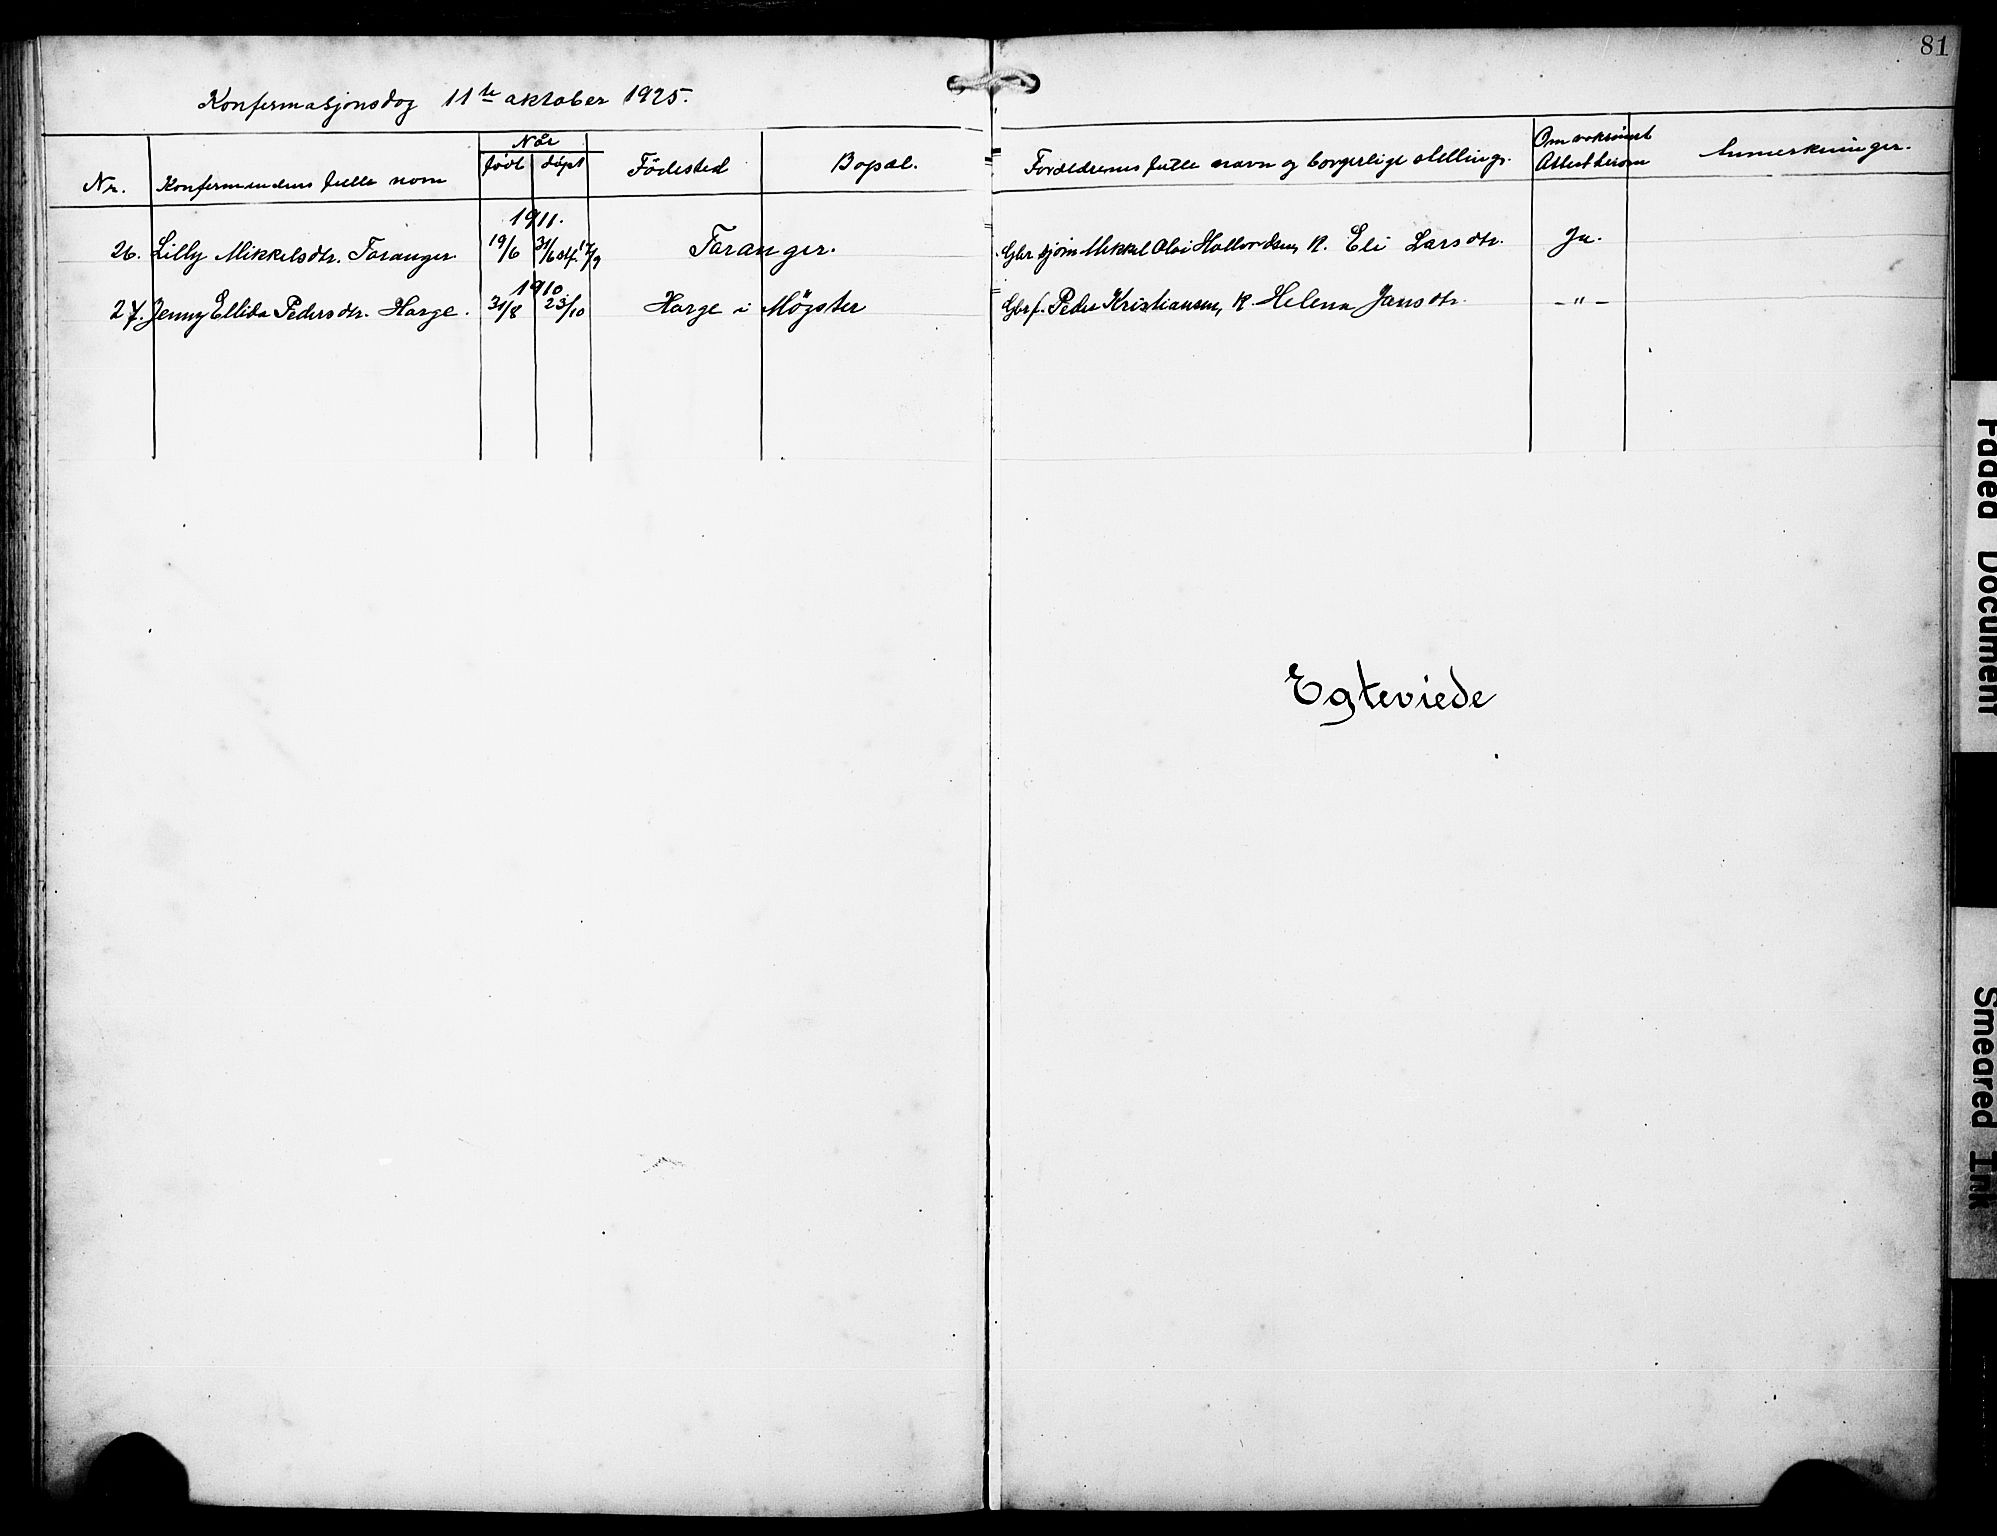 81
Konfermasjonsdag 11te oktober 1925.
Nr. Konfermandens fulle navn Når født døpt Fødested Bopæl. Forældrenes fulle navn og borgerlige stilling. Om vaksinert Attest derom Anmerkninger.
1911.
26. Lilly Mikkelsdtr. Foranger. 19/6 31/6 17/9 Foranger. Mikkel Olai Hallvordsen, K. Eli Larsdtr. Ja.
1910
27. Jenny Ellida Pedersdtr. Harge. 31/8 23/10 Harge i Møgster Gbrf. Peder Kristiansen, K. Helena Jansdtr. -"-
Egteviede
Faded Document
Smeared Ink